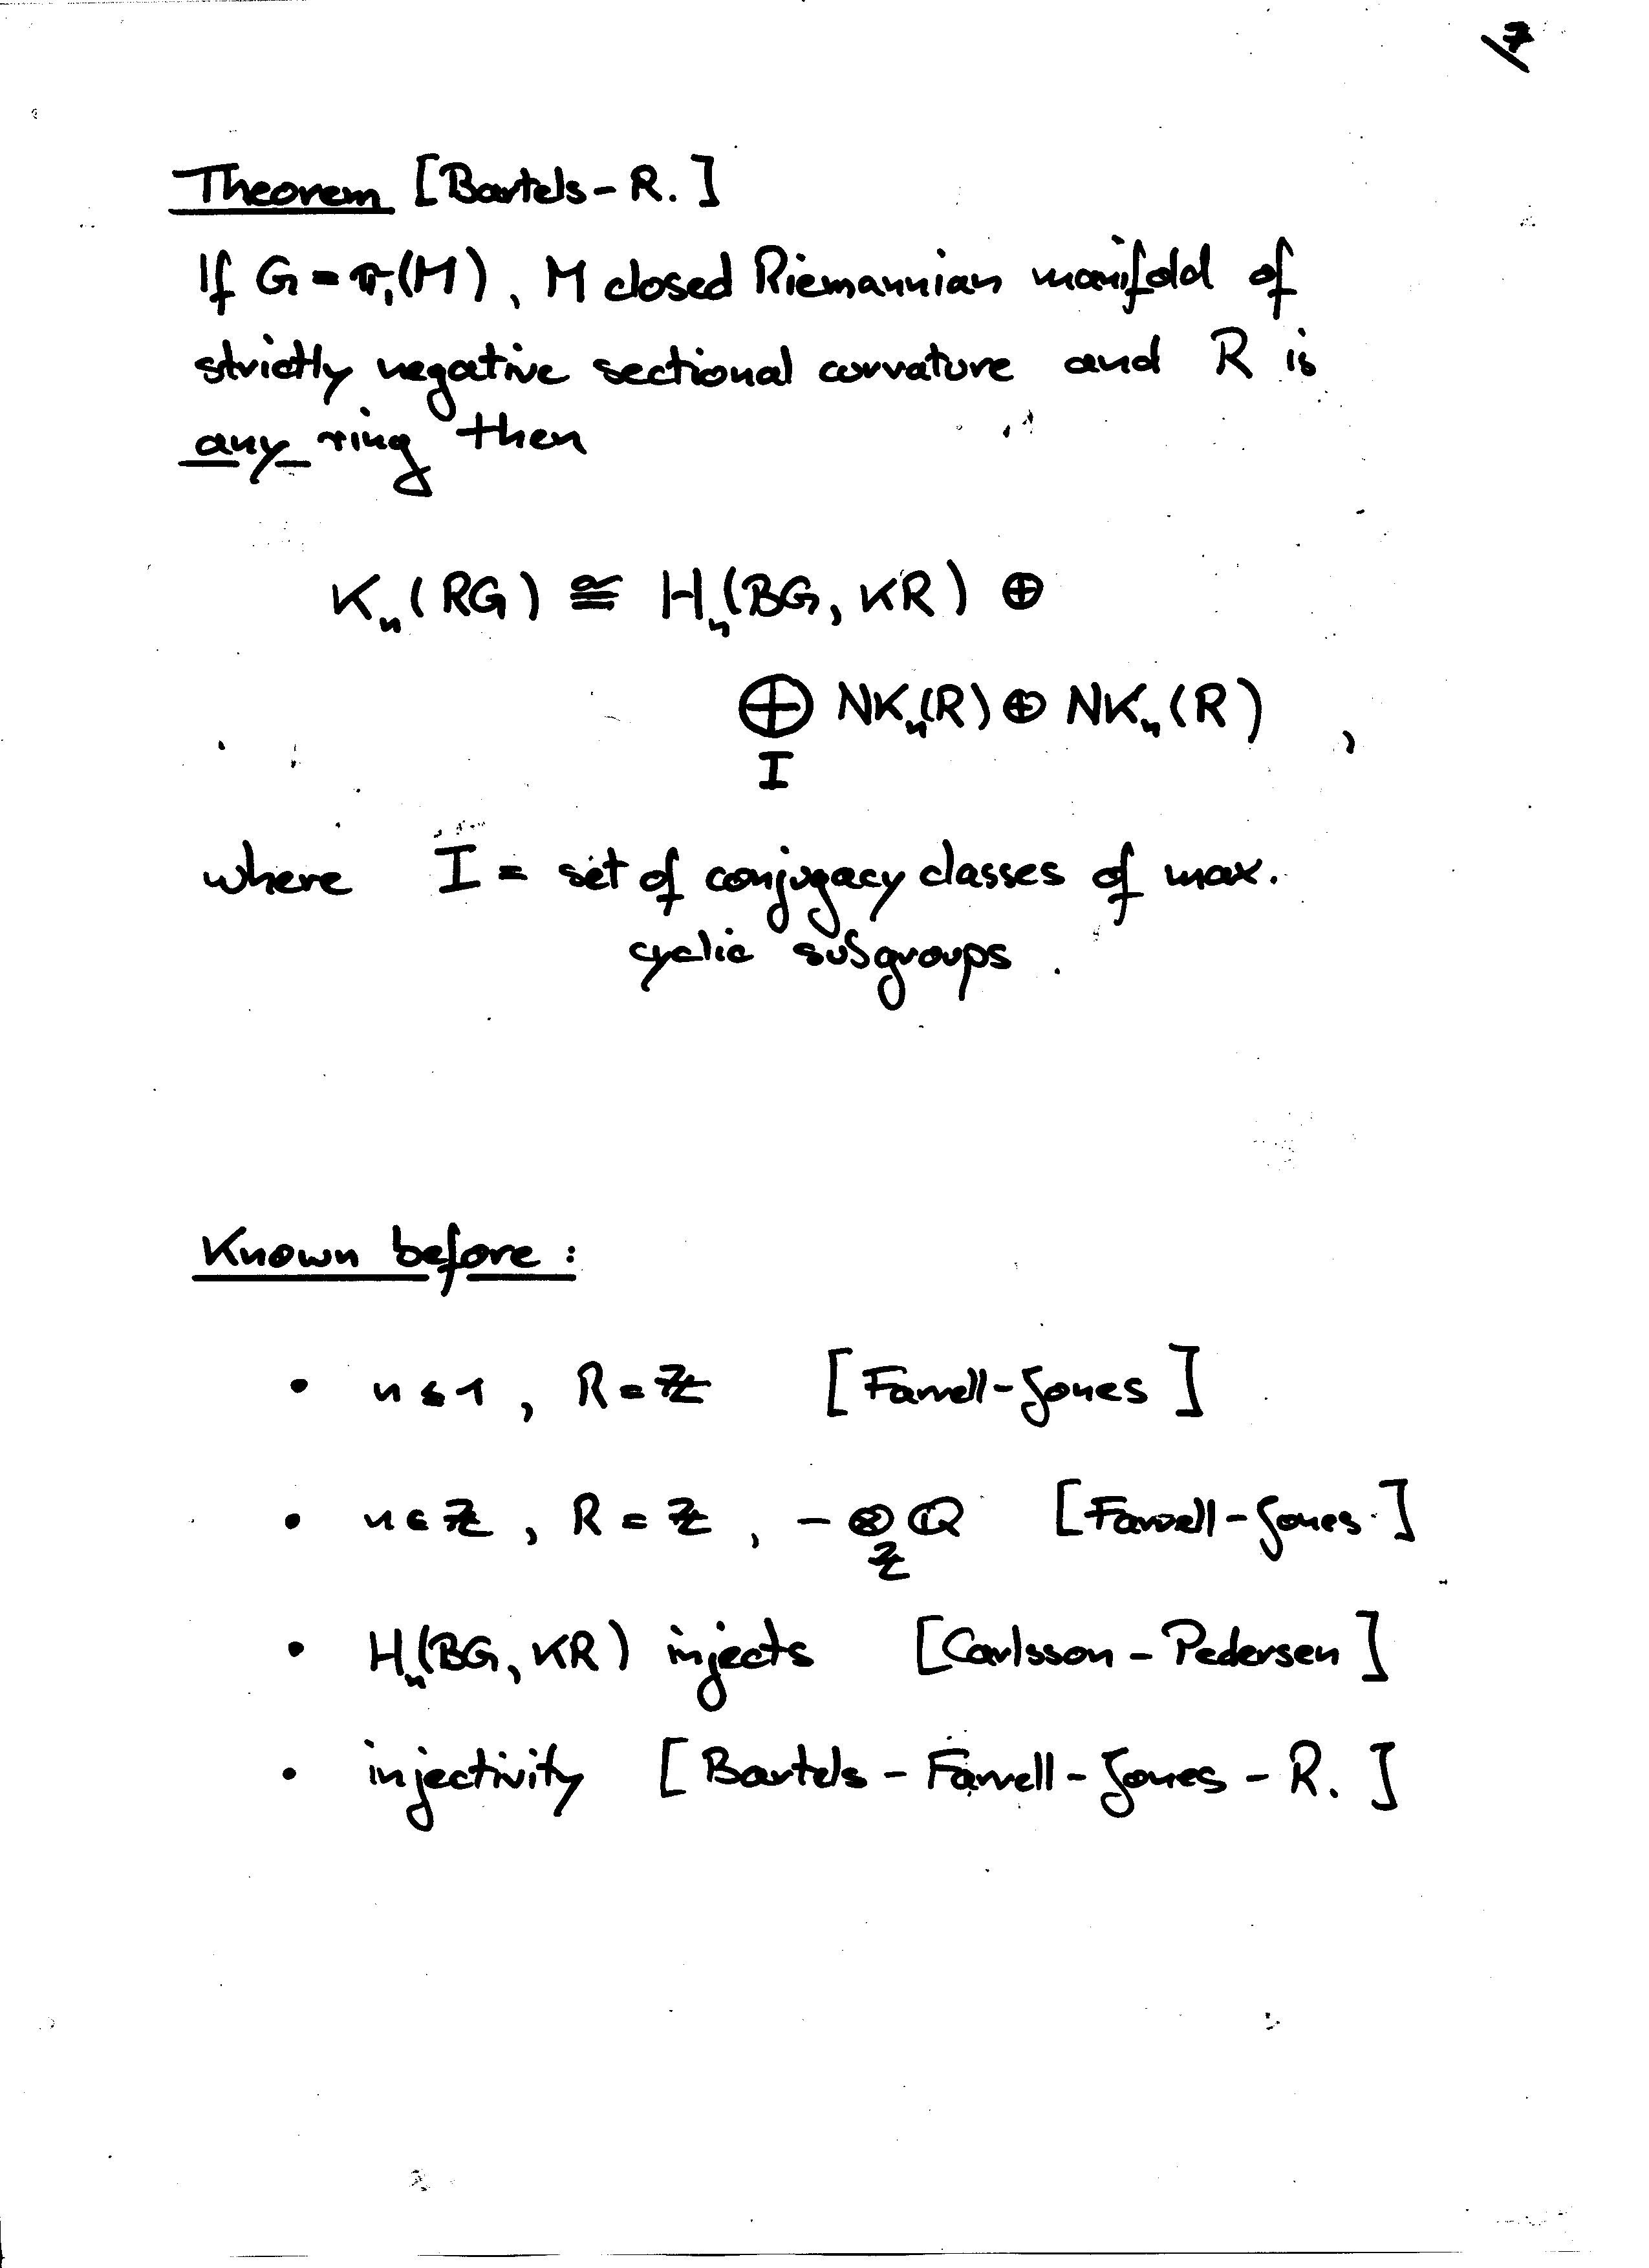 7
Theorem [Bartels - R.]
If G = π₁(M), M closed Riemannian manifold of
strictly negative sectional curvature and R is
any ring then
Kₙ(RG) ≅ Hₙ(BG, KR) ⊕
⊕ NKₙ(R) ⊕ NKₙ(R) ,
I
where I = set of conjugacy classes of max.
cyclic subgroups .
Known before :
• n ≤ 1 , R = ℤ [Farrell - Jones]
• n ∈ ℤ , R = ℤ , - ⊗ ℚ [Farrell - Jones]
ℤ
• Hₙ(BG, KR) injects [Carlsson - Pedersen]
• injectivity [Bartels - Farrell - Jones - R.]